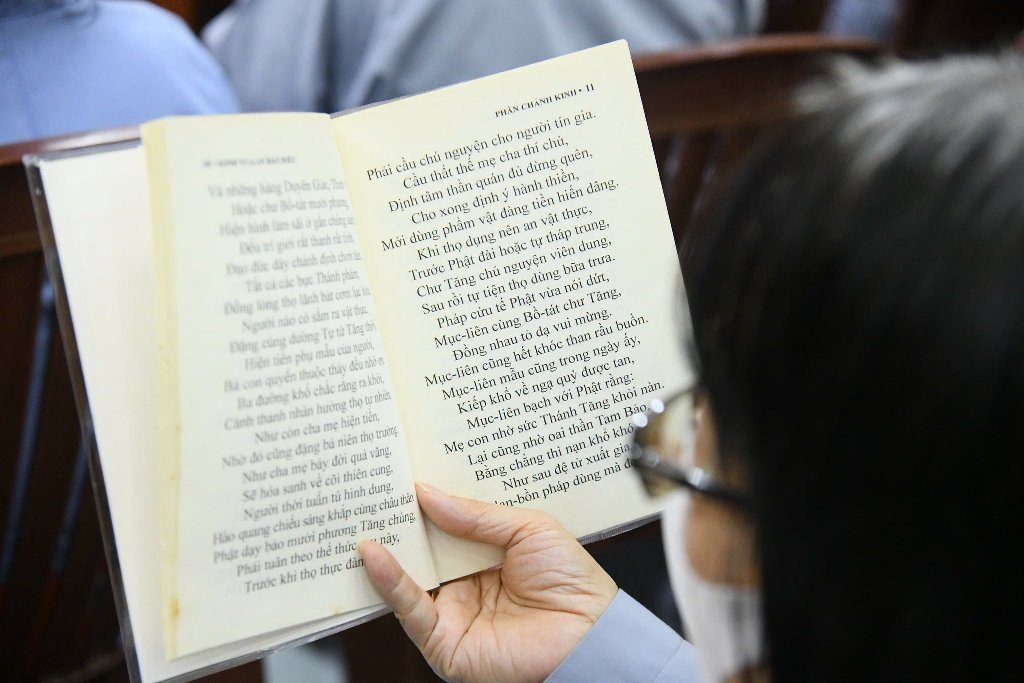 10 • KINH VU LAN BÁO HIẾU
Và những hàng Duyên Giác, Thanh
Hoặc chư Bồ-tát mười phương
Hiện hình làm sãi ở gần chúng
Đều trì giới rất thanh rất tịnh,
Đạo đức dày chánh định chơn
Tất cả các bực Thánh phàm,
Đồng lòng thọ lãnh bát cơm lục hòa
Người nào có sắm ra vật thực,
Đặng cúng dường Tự tứ Tăng thời,
Hiện tiền phụ mẫu của người,
Bà con quyến thuộc thảy đều nhờ ơn
Ba đường khổ chắc rằng ra khỏi,
Cảnh thanh nhàn hưởng thọ tự nhiên
Như còn cha mẹ hiện tiền,
Nhờ đó cũng đặng bá niên thọ trường
Như cha mẹ bảy đời quá vãng,
Sẽ hóa sanh về cõi thiên cung,
Người thời tuấn tú hình dung,
Hào quang chiếu sáng khắp cùng châu thân
Phật dạy bảo mười phương Tăng chúng,
Phải tuân theo thể thức này,
Trước khi thọ thực đàn
PHẦN CHÁNH KINH • 11
Phải cầu chú nguyện cho người tín gia.
Cầu thất thế mẹ cha thí chủ,
Định tâm thần quán đủ đừng quên,
Cho xong định ý hành thiền,
Mới dùng phẩm vật đàng tiền hiến dâng.
Khi thọ dụng nên an vật thực,
Trước Phật đài hoặc tự tháp trung,
Chư Tăng chú nguyện viên dung,
Sau rồi tự tiện thọ dùng bữa trưa.
Pháp cứu tế Phật vừa nói dứt,
Mục-liên cùng Bồ-tát chư Tăng,
Đồng nhau tỏ dạ vui mừng.
Mục-liên cũng hết khóc than rầu buồn.
Mục-liên mẫu cũng trong ngày ấy,
Kiếp khổ về ngạ quỷ được tan,
Mục-liên bạch với Phật rằng:
Mẹ con nhờ sức Thánh Tăng khỏi nàn.
Lại cũng nhờ oai thần Tam Bảo
Bằng chẳng thì nạn khổ khó
Như sau đệ tử xuất gia
-bồn pháp dùng mà